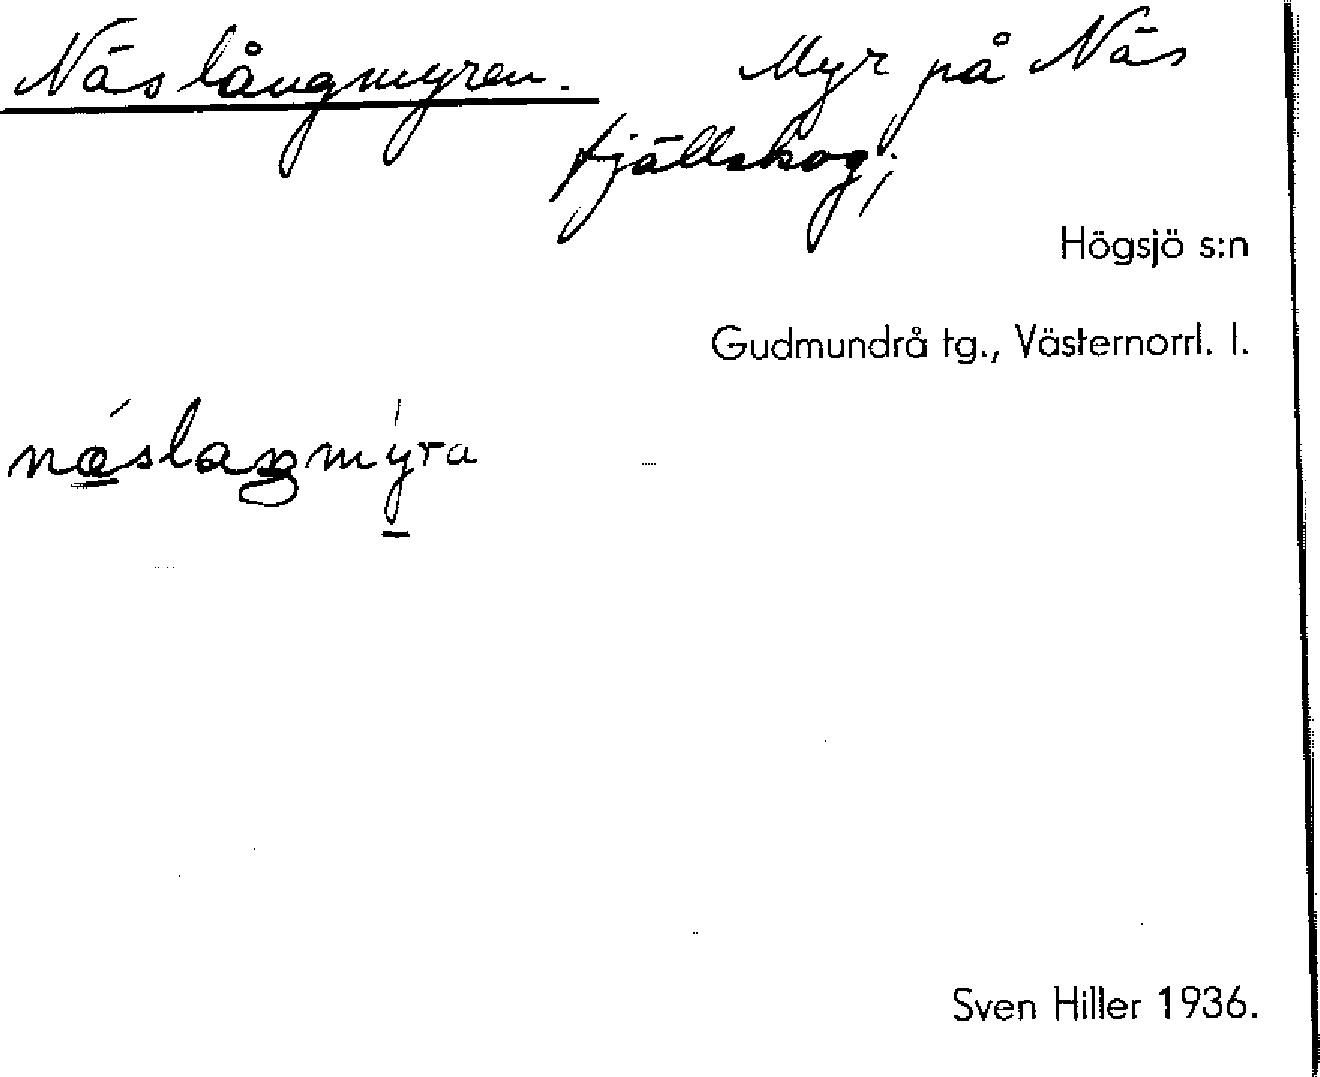 Näslångmyren. Myr på Näs
fjällskog;
Högsjö s:n
Gudmundrå tg., Västernorrl. l.
næ´slaŋmy´ra
Sven Hiller 1936.